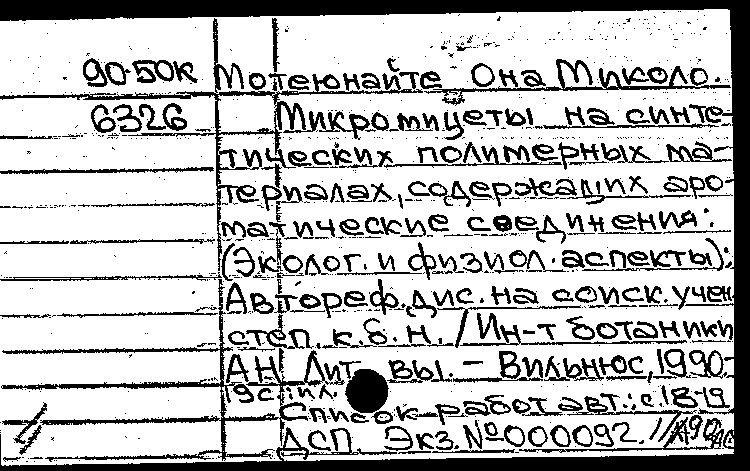 90-50К Мотеюнайте Она Миколо.
6326 Микромицеты на синте-
тических полимерных ма-
териалах, содержащих аро-
матические соединения:
(Эколог. и физиол. аспекты):
Автореф. дис. на соиск. учен
степ. к. б. н. / Ин-т ботаники
АН Лит вы. - Вильнюс, 1990-
19с ил.
Список работ авт.: с 18-19
ДСП. Экз. № 000092.